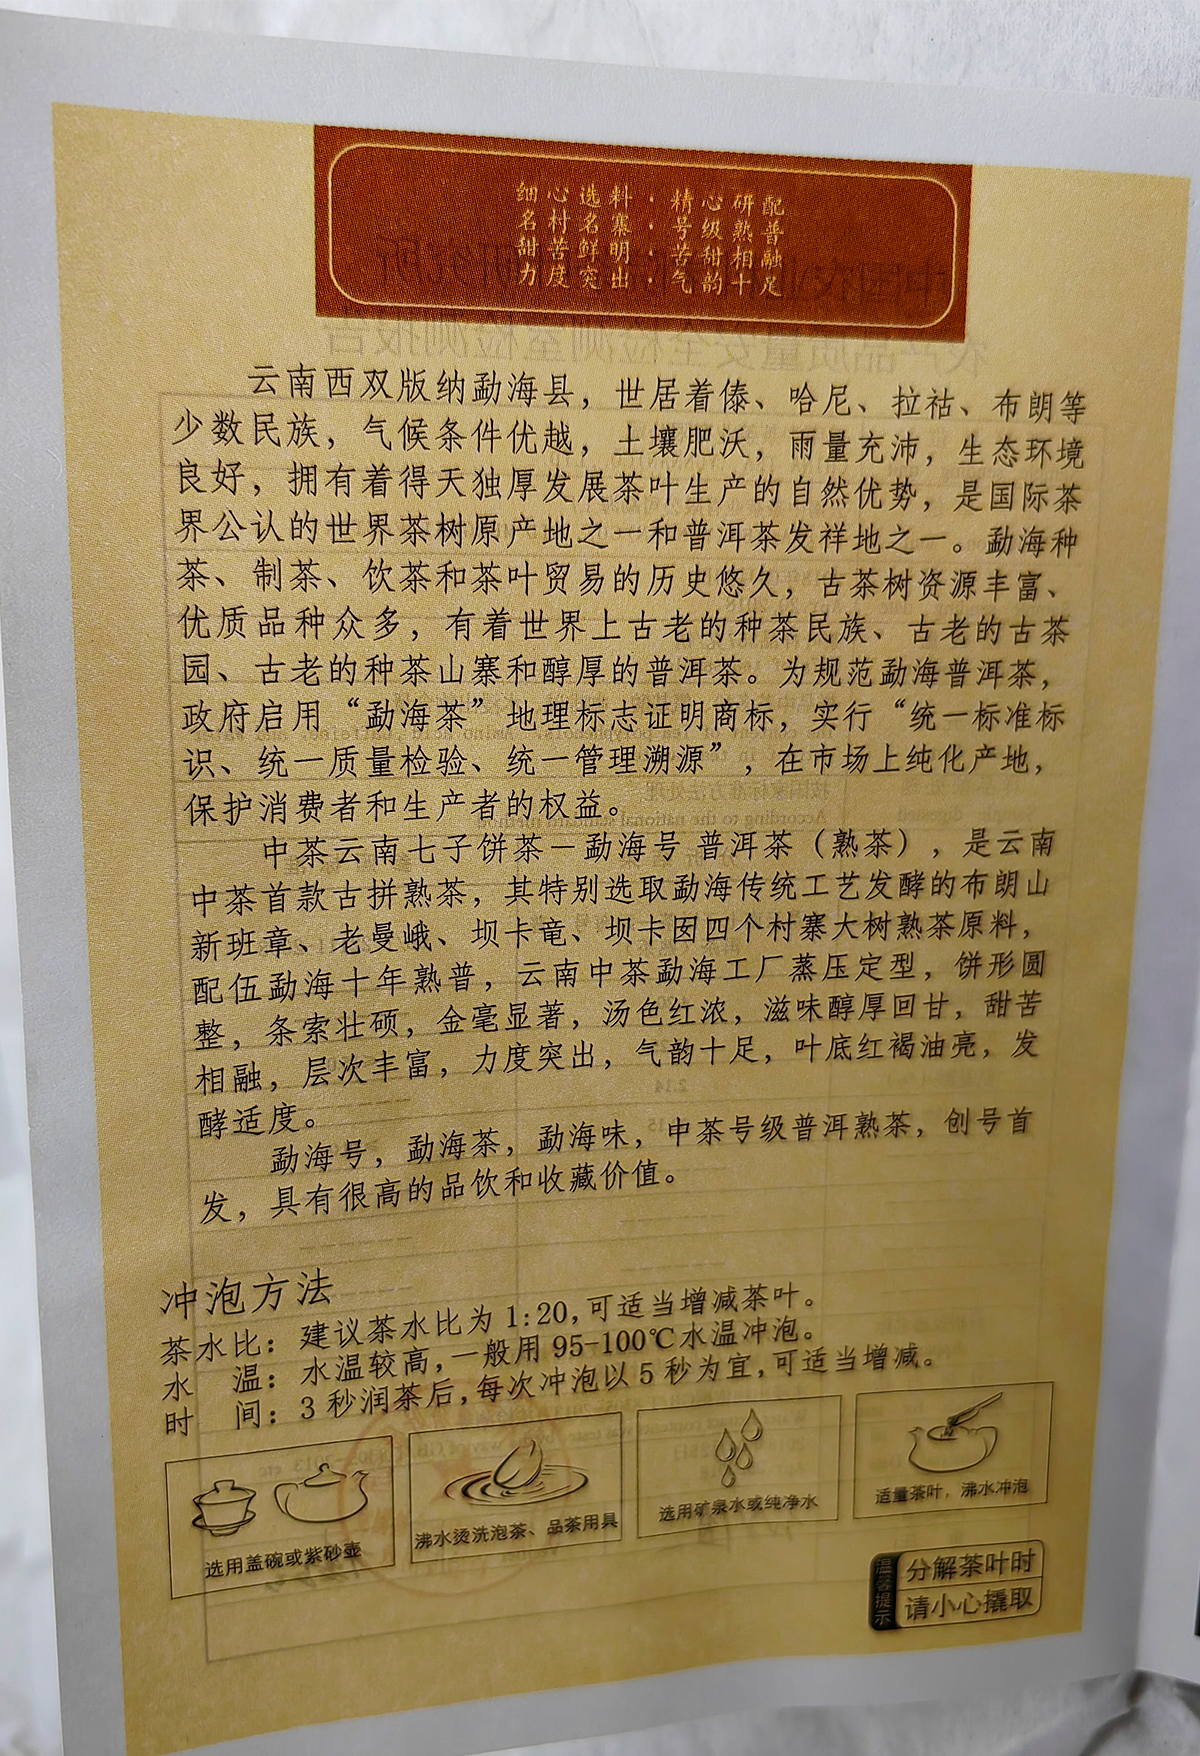 细心选料·精心研配
名村名寨·号级熟普
甜苦鲜明·苦甜相融
力度突出·气韵十足
云南西双版纳勐海县，世居着傣、哈尼、拉祜、布朗等
少数民族，气候条件优越，土壤肥沃，雨量充沛，生态环境
良好，拥有着得天独厚发展茶叶生产的自然优势，是国际茶
界公认的世界茶树原产地之一和普洱茶发祥地之一。勐海种
茶、制茶、饮茶和茶叶贸易的历史悠久，古茶树资源丰富、
优质品种众多，有着世界上古老的种茶民族、古老的古茶
园、古老的种茶山寨和醇厚的普洱茶。为规范勐海普洱茶，
政府启用“勐海茶”地理标志证明商标，实行“统一标准标
识、统一质量检验、统一管理溯源”，在市场上纯化产地，
保护消费者和生产者的权益。
中茶云南七子饼茶－勐海号 普洱茶（熟茶），是云南
中茶首款古拼熟茶，其特别选取勐海传统工艺发酵的布朗山
新班章、老曼峨、坝卡竜、坝卡囡四个村寨大树熟茶原料，
配伍勐海十年熟普，云南中茶勐海工厂蒸压定型，饼形圆
整，条索壮硕，金毫显著，汤色红浓，滋味醇厚回甘，甜苦
相融，层次丰富，力度突出，气韵十足，叶底红褐油亮，发
酵适度。
勐海号，勐海茶，勐海味，中茶号级普洱熟茶，创号首
发，具有很高的品饮和收藏价值。
冲泡方法
茶水比：建议茶水比为 1:20,可适当增减茶叶。
水　温：水温较高,一般用 95-100℃水温冲泡。
时　间：3 秒润茶后,每次冲泡以 5 秒为宜,可适当增减。
选用盖碗或紫砂壶
沸水烫洗泡茶、品茶用具
选用矿泉水或纯净水
适量茶叶，沸水冲泡
温馨提示
分解茶叶时
请小心撬取